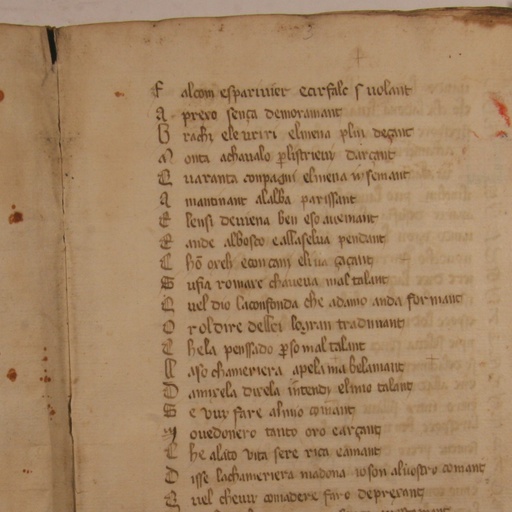 F alcom esparivier ecirfalc s volant
A prexo sença demoramant
B rachi elevriri elmena plui deçant
M onta achavalo p listrievi darçant
Q uaranta conpagni elmena in semant
A mantinant alalba parissant
E lensi deviena ben eso avenant
E ande albosco e allaselva pendant
C hõ oreli econ cani eliva caçant
G ufia romare chaveva mal talant
Q uel dio laconfonda che adamo anda formant
O r oldire dellei logran tradimant
C hela penssado p so mal talant
N aso chameriera apela ĩna belamant
D amixela divela intendi elmio talant
S e vuy fare almio comant
M ovedonero tanto oro earçant
C he alato vita sere rica eamant
D isse lachameriera madona io son alvostro comant
Q uel chevuy comadere faro deprexant